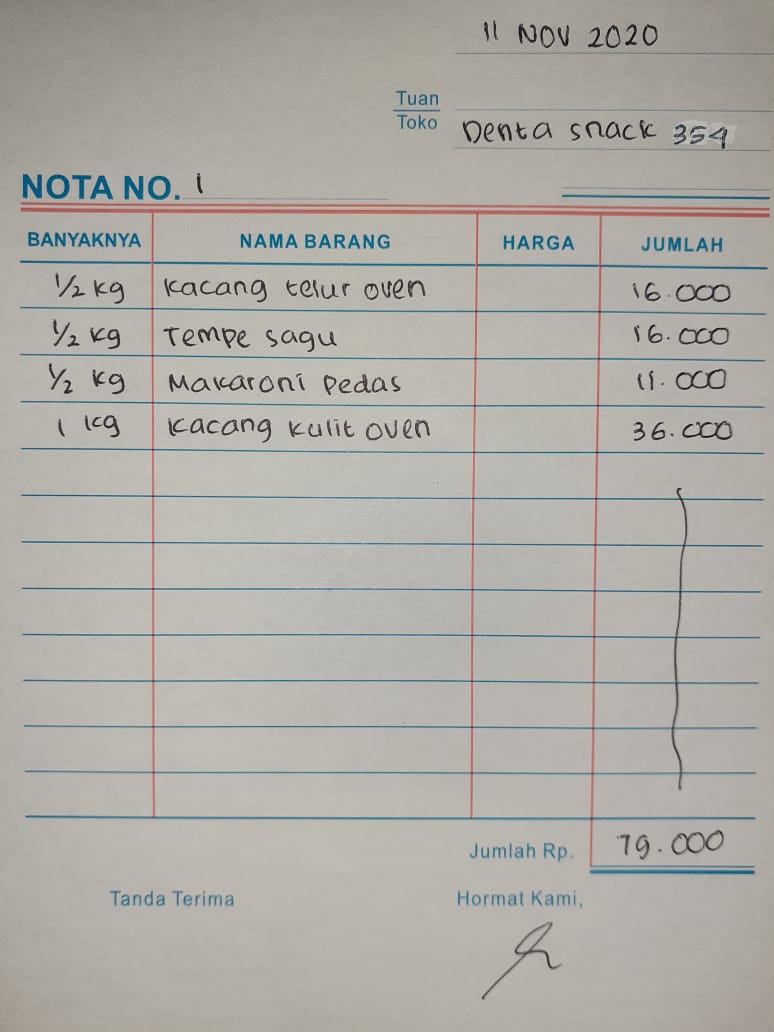 11 NOV 2020
Tuan
Toko Denta snack 354
NOTA NO. 1
BANYAKNYA NAMA BARANG HARGA JUMLAH
1/2 kg Kacang telur oven 16.000
1/2 kg Tempe sagu 16.000
1/2 kg Makaroni Pedas 11.000
1 kg Kacang kulit oven 36.000
Jumlah Rp. 79.000
Tanda Terima Hormat Kami,